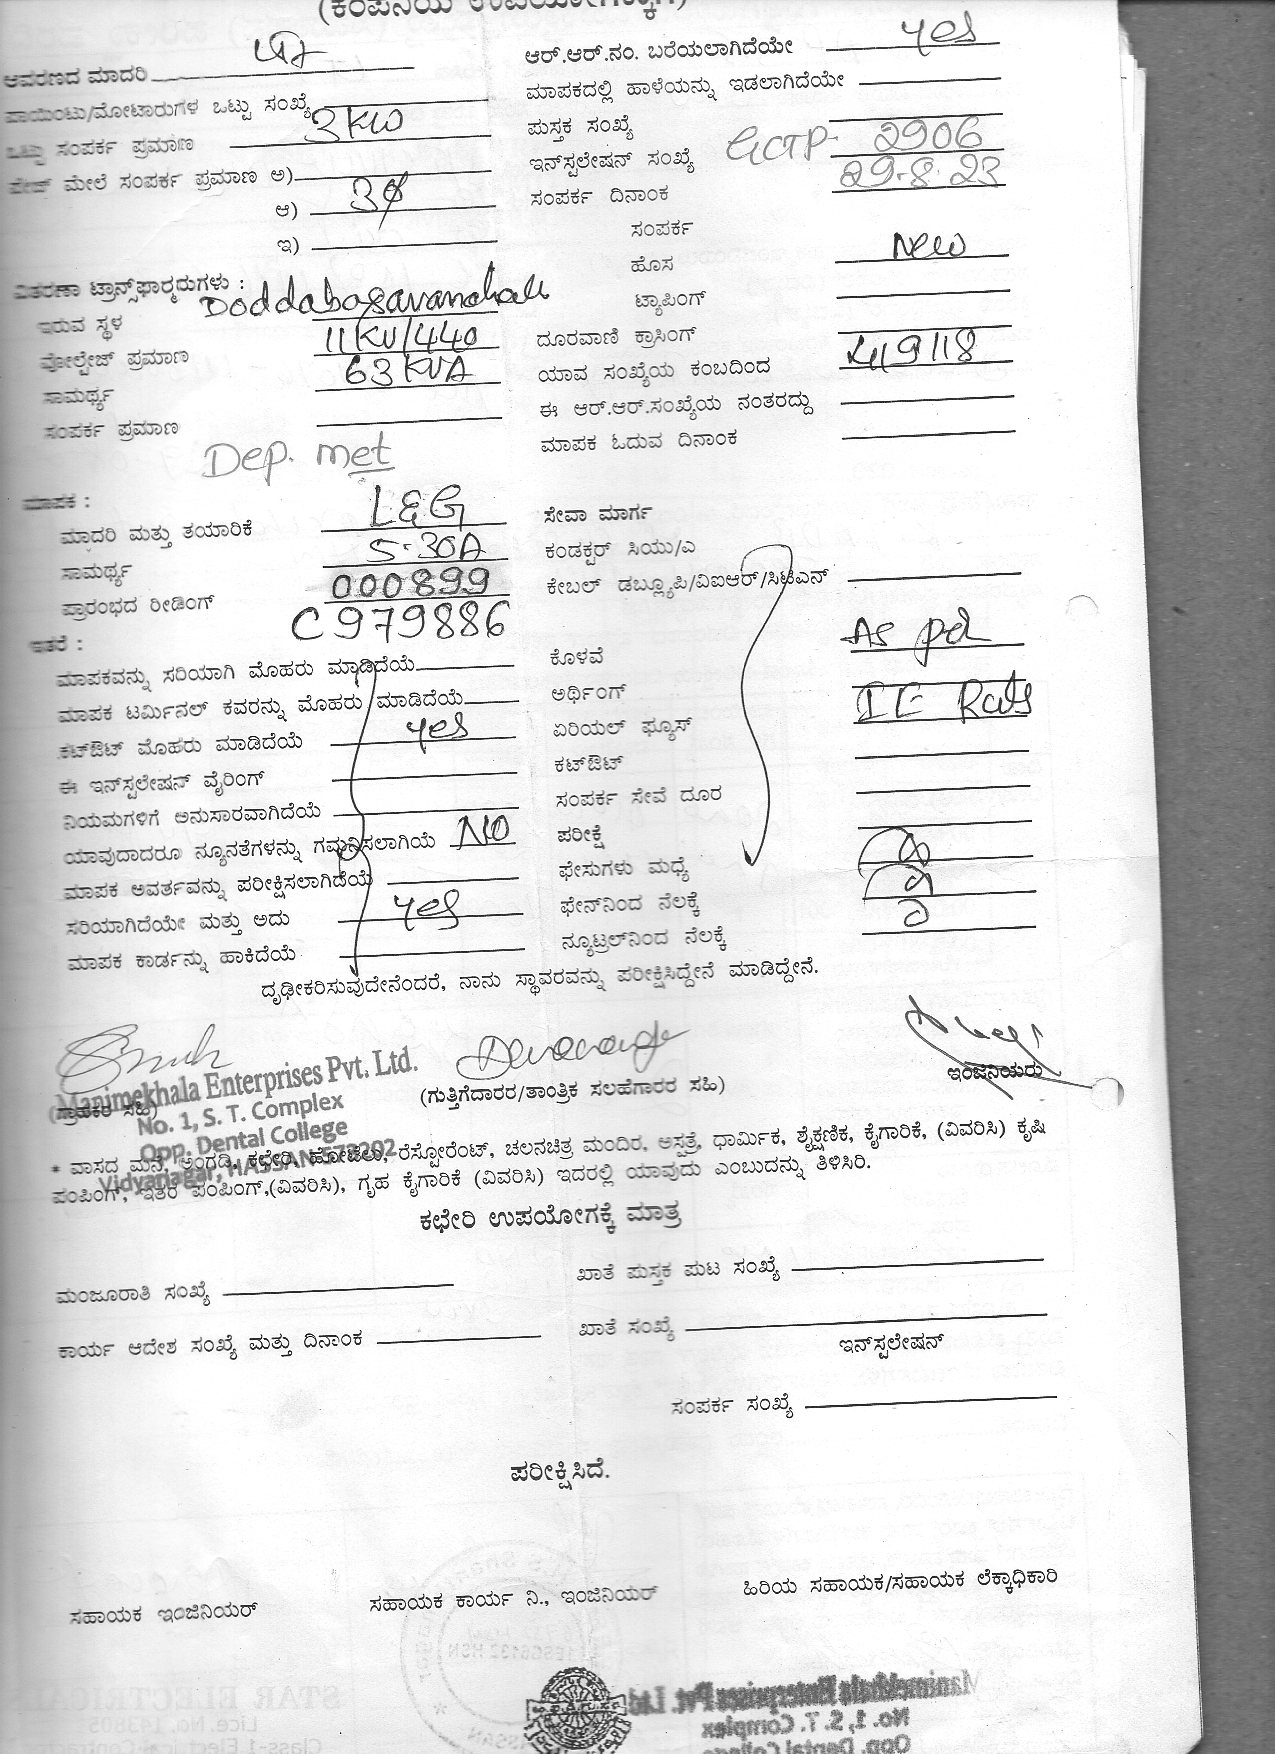 (ಕಂಪನಿಯ ಉಪಯೋಗಕ್ಕಾಗಿ)
ಆವರಣದ ಮಾದರಿ
ಪಾಯಿಂಟು/ಮೋಟಾರುಗಳ ಒಟ್ಟು ಸಂಖ್ಯೆ
ಒಟ್ಟು ಸಂಪರ್ಕ ಪ್ರಮಾಣ 3 KW
ಪೇಜ್ ಮೇಲೆ ಸಂಪರ್ಕ ಪ್ರಮಾಣ ಅ)
ಆ) 3φ
ಇ)
ವಿತರಣಾ ಟ್ರಾನ್ಸ್‌ಫಾರ್ಮರುಗಳು :
ಇರುವ ಸ್ಥಳ Doddabasavanahalli
ವೋಲ್ಟೇಜ್ ಪ್ರಮಾಣ 11KV/440
ಸಾಮರ್ಥ್ಯ 63 KVA
ಸಂಪರ್ಕ ಪ್ರಮಾಣ
Dep. met
ಮಾಪಕ :
ಮಾದರಿ ಮತ್ತು ತಯಾರಿಕೆ L&G
ಸಾಮರ್ಥ್ಯ 5-30A
ಪ್ರಾರಂಭದ ರೀಡಿಂಗ್ 000899
C979886
ಇತರೆ :
ಮಾಪಕವನ್ನು ಸರಿಯಾಗಿ ಮೊಹರು ಮಾಡಿದೆಯೆ
ಮಾಪಕ ಟರ್ಮಿನಲ್ ಕವರನ್ನು ಮೊಹರು ಮಾಡಿದೆಯೆ
ಕಟ್‌ಔಟ್ ಮೊಹರು ಮಾಡಿದೆಯೆ yes
ಈ ಇನ್‌ಸ್ಟಲೇಷನ್ ವೈರಿಂಗ್
ನಿಯಮಗಳಿಗೆ ಅನುಸಾರವಾಗಿದೆಯೆ
ಯಾವುದಾದರೂ ನ್ಯೂನತೆಗಳನ್ನು ಗಮನಿಸಲಾಗಿಯೆ NO
ಮಾಪಕ ಅವರ್ತವನ್ನು ಪರೀಕ್ಷಿಸಲಾಗಿದೆಯೆ
ಸರಿಯಾಗಿದೆಯೇ ಮತ್ತು ಅದು yes
ಮಾಪಕ ಕಾರ್ಡನ್ನು ಹಾಕಿದೆಯೆ
ಆರ್.ಆರ್.ನಂ. ಬರೆಯಲಾಗಿದೆಯೇ yes
ಮಾಪಕದಲ್ಲಿ ಹಾಳೆಯನ್ನು ಇಡಲಾಗಿದೆಯೇ
ಪುಸ್ತಕ ಸಂಖ್ಯೆ
ಇನ್‌ಸ್ಟಲೇಷನ್ ಸಂಖ್ಯೆ GCTP- 2906
ಸಂಪರ್ಕ ದಿನಾಂಕ 29-8-23
ಸಂಪರ್ಕ
ಹೊಸ New
ಟ್ಯಾಪಿಂಗ್
ದೂರವಾಣಿ ಕ್ರಾಸಿಂಗ್
ಯಾವ ಸಂಖ್ಯೆಯ ಕಂಬದಿಂದ
ಈ ಆರ್.ಆರ್.ಸಂಖ್ಯೆಯ ನಂತರದ್ದು
ಮಾಪಕ ಓದುವ ದಿನಾಂಕ
ಸೇವಾ ಮಾರ್ಗ
ಕಂಡಕ್ಟರ್ ಸಿಯು/ಎ
ಕೇಬಲ್ ಡಬ್ಲ್ಯೂಪಿ/ವಿಐಆರ್/ಸಿಟಿಎನ್
ಕೊಳವೆ As per
ಅರ್ಥಿಂಗ್ IE Rules
ಏರಿಯಲ್ ಫ್ಯೂಸ್
ಕಟ್‌ಔಟ್
ಸಂಪರ್ಕ ಸೇವೆ ದೂರ
ಪರೀಕ್ಷೆ
ಫೇಸುಗಳು ಮಧ್ಯೆ
ಫೇನ್‌ನಿಂದ ನೆಲಕ್ಕೆ
ನ್ಯೂಟ್ರಲ್‌ನಿಂದ ನೆಲಕ್ಕೆ
ದೃಢೀಕರಿಸುವುದೇನೆಂದರೆ, ನಾನು ಸ್ಥಾವರವನ್ನು ಪರೀಕ್ಷಿಸಿದ್ದೇನೆ ಮಾಡಿದ್ದೇನೆ.
Manimekhala Enterprises Pvt. Ltd.
No. 1, S. T. Complex
Opp. Dental College
Vidyanagar, HASSAN-573202
(ಗ್ರಾಹಕರ ಸಹಿ)
(ಗುತ್ತಿಗೆದಾರರ/ತಾಂತ್ರಿಕ ಸಲಹೆಗಾರರ ಸಹಿ)
ಇಂಜಿನಿಯರು
* ವಾಸದ ಮನೆ, ಅಂಗಡಿ, ಕಛೇರಿ, ಹೋಟೆಲು, ರೆಸ್ಟೋರೆಂಟ್, ಚಲನಚಿತ್ರ ಮಂದಿರ, ಆಸ್ಪತ್ರೆ, ಧಾರ್ಮಿಕ, ಶೈಕ್ಷಣಿಕ, ಕೈಗಾರಿಕೆ, (ವಿವರಿಸಿ) ಕೃಷಿ
ಪಂಪಿಂಗ್, ಇತರ ಪಂಪಿಂಗ್,(ವಿವರಿಸಿ), ಗೃಹ ಕೈಗಾರಿಕೆ (ವಿವರಿಸಿ) ಇದರಲ್ಲಿ ಯಾವುದು ಎಂಬುದನ್ನು ತಿಳಿಸಿರಿ.
ಕಛೇರಿ ಉಪಯೋಗಕ್ಕೆ ಮಾತ್ರ
ಮಂಜೂರಾತಿ ಸಂಖ್ಯೆ
ಖಾತೆ ಪುಸ್ತಕ ಪುಟ ಸಂಖ್ಯೆ
ಕಾರ್ಯ ಆದೇಶ ಸಂಖ್ಯೆ ಮತ್ತು ದಿನಾಂಕ
ಖಾತೆ ಸಂಖ್ಯೆ
ಇನ್‌ಸ್ಟಲೇಷನ್
ಸಂಪರ್ಕ ಸಂಖ್ಯೆ
ಪರೀಕ್ಷಿಸಿದೆ.
ಸಹಾಯಕ ಇಂಜಿನಿಯರ್
ಸಹಾಯಕ ಕಾರ್ಯ ನಿ., ಇಂಜಿನಿಯರ್
ಹಿರಿಯ ಸಹಾಯಕ/ಸಹಾಯಕ ಲೆಕ್ಕಾಧಿಕಾರಿ